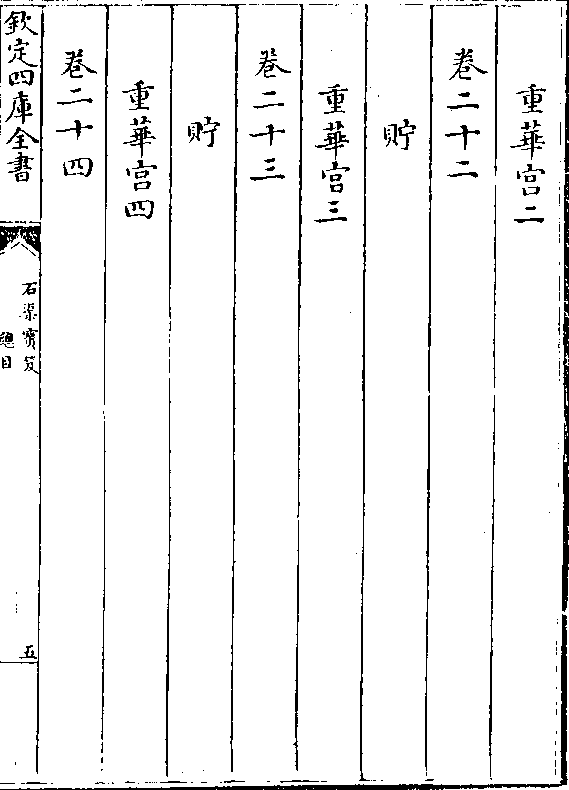 重華宮二
卷二十二
貯
重華宮三
卷二十三
貯
重華宮四
卷二十四
欽定四庫全書
石渠寶笈
總目
五